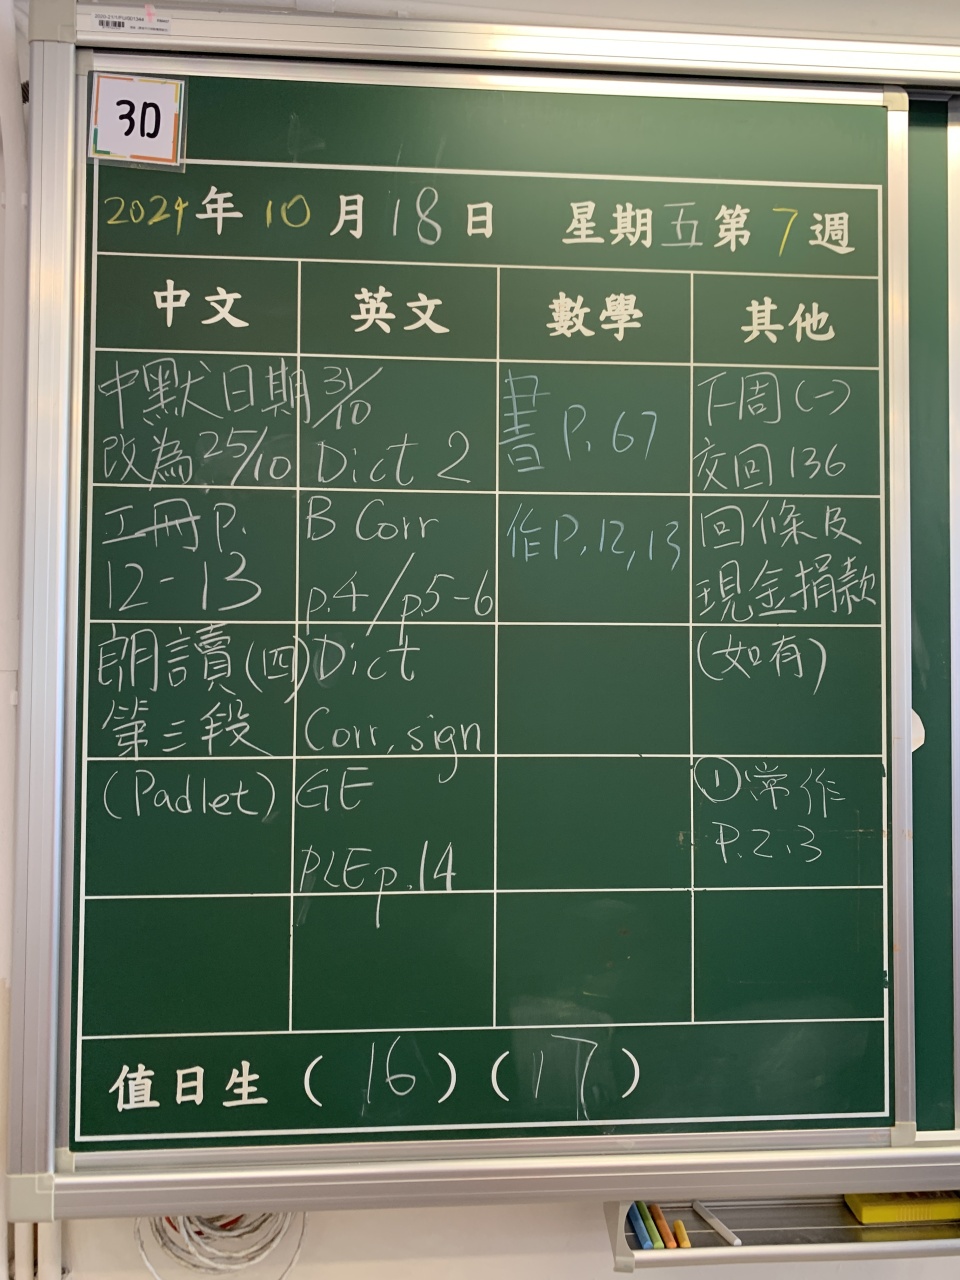 3D
2024年10月18日 星期五第7週
中文 英文 數學 其他
中默日期
改為25/10
工冊p.
12-13
朗讀(四)
第三段
(Padlet)
31/10
Dict 2
B Corr
p.4/p.5-6
Dict
Corr, sign
GE
PLE p.14
書 P. 67
作 P. 12, 13
下周(一)
交回136
回條及
現金捐款
(如有)
①常作
P.2.3
值日生(16)(17)